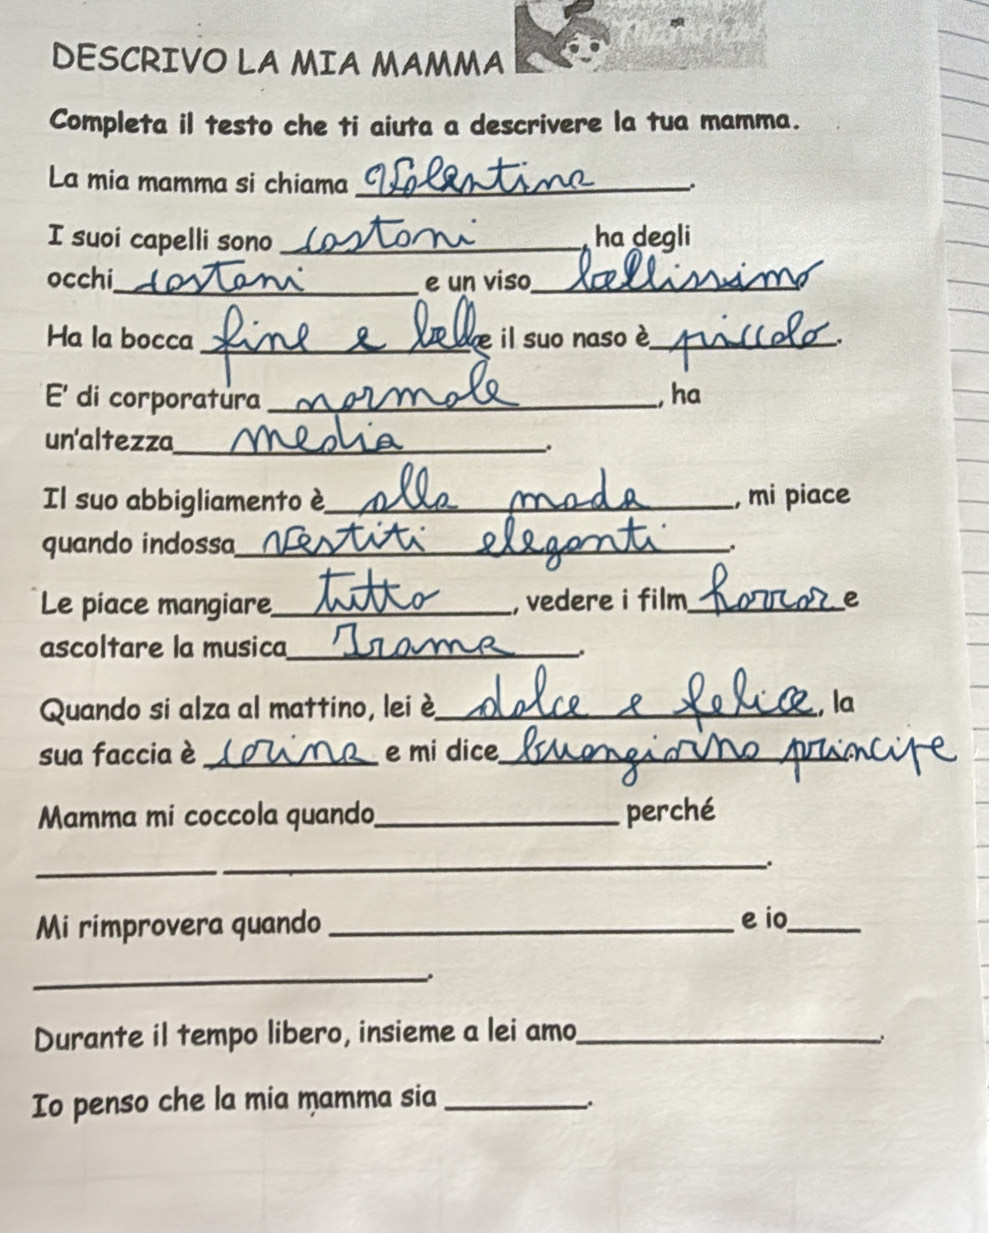 DESCRIVO LA MIA MAMMA
Completa il testo che ti aiuta a descrivere la tua mamma.
La mia mamma si chiama Valentina.
I suoi capelli sono castani, ha degli
occhi castani e un viso bellissimo
Ha la bocca fine e bella e il suo naso è piccolo.
E' di corporatura normale, ha
un'altezza media.
Il suo abbigliamento è alla moda, mi piace
quando indossa vestiti eleganti.
Le piace mangiare tutto, vedere i film horror e
ascoltare la musica Irama.
Quando si alza al mattino, lei è dolce e felice, la
sua faccia è carina e mi dice buongiorno principe
Mamma mi coccola quando____________ perché
____________ ____________.
Mi rimprovera quando ____________ e io____
____________.
Durante il tempo libero, insieme a lei amo____________.
Io penso che la mia mamma sia ________.